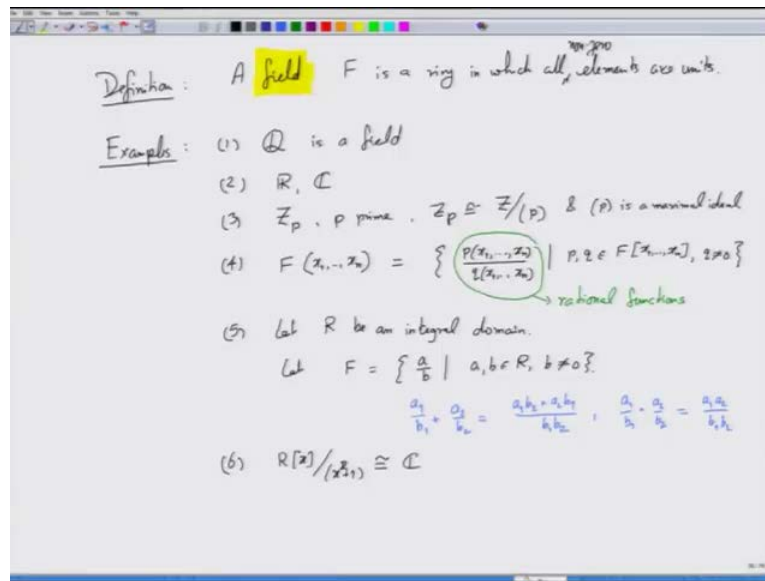 non-zero
Definition : A field F is a ring in which all elements are units.
Examples : (1) ℚ is a field
(2) ℝ, ℂ
(3) ℤp , p prime . ℤp ≅ ℤ/(p) & (p) is a maximal ideal
(4) F (x₁,..,xₙ) = { p(x₁,...,xₙ)/q(x₁,..,xₙ) | p, q ∈ F[x₁,..,xₙ], q≠0 }
→ rational functions
(5) Let R be an integral domain.
Let F = { a/b | a, b ∈ R, b ≠ 0 }.
a₁/b₁ + a₂/b₂ = (a₁b₂ + a₂b₁)/b₁b₂ , a₁/b₁ · a₂/b₂ = a₁a₂/b₁b₂
(6) ℝ[x]/(x²+1) ≅ ℂ